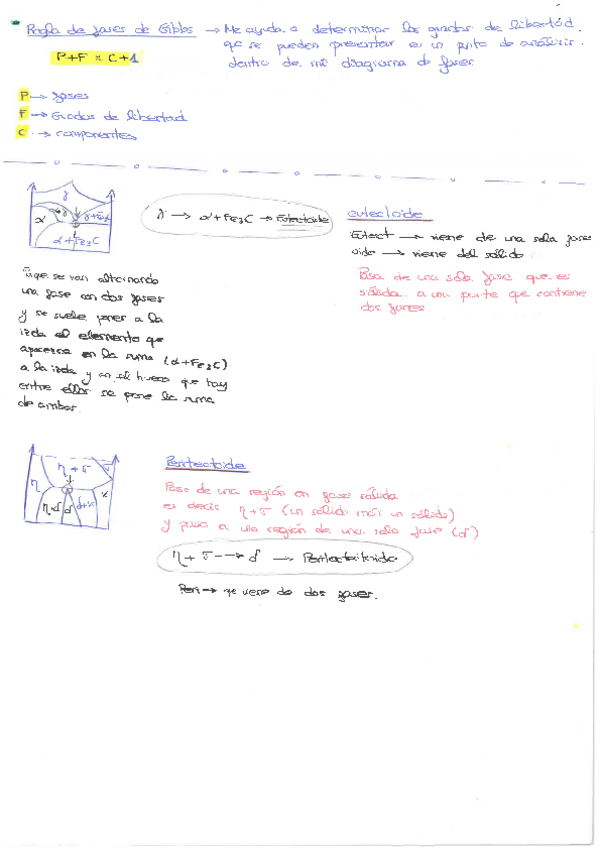 Regla de fases de Gibbs → Me ayuda a determinar los grados de libertad
que se pueden presentar en un punto de análisis
dentro de mi diagrama de fases
P+F = C+1
P → fases
F → Grados de libertad
C → componentes
γ
α
α+Fe3C
γ → α+Fe3C → Eutectoide
eutectoide
Eutect → viene de una sola fase
oide → viene del sólido
Pasa de una sola fase que es
sólida a una parte que contiene
dos fases
que se van alternando
una fase con dos fases
y se suele poner a la
izda el elemento que
aparezca en la suma (α+Fe3C)
a la izda y en el hueco que hay
entre ellos se pone la suma
de ambos.
η+σ
η
Peritectoide
Pasa de una región en fase sólida
es decir η+σ (un sólido más un sólido)
y pasa a una región de una sola fase (δ)
η+σ → δ →
Peri → que vero de dos fases.